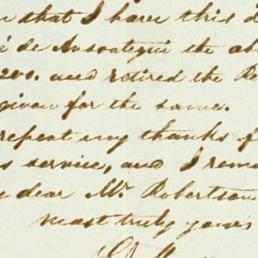 that I have this d
é de Ansoategui the ab
200. and retired the Re
given for the same.
repeat my thanks f
s service, and I rema
dear Mr Robertson
most truly yours